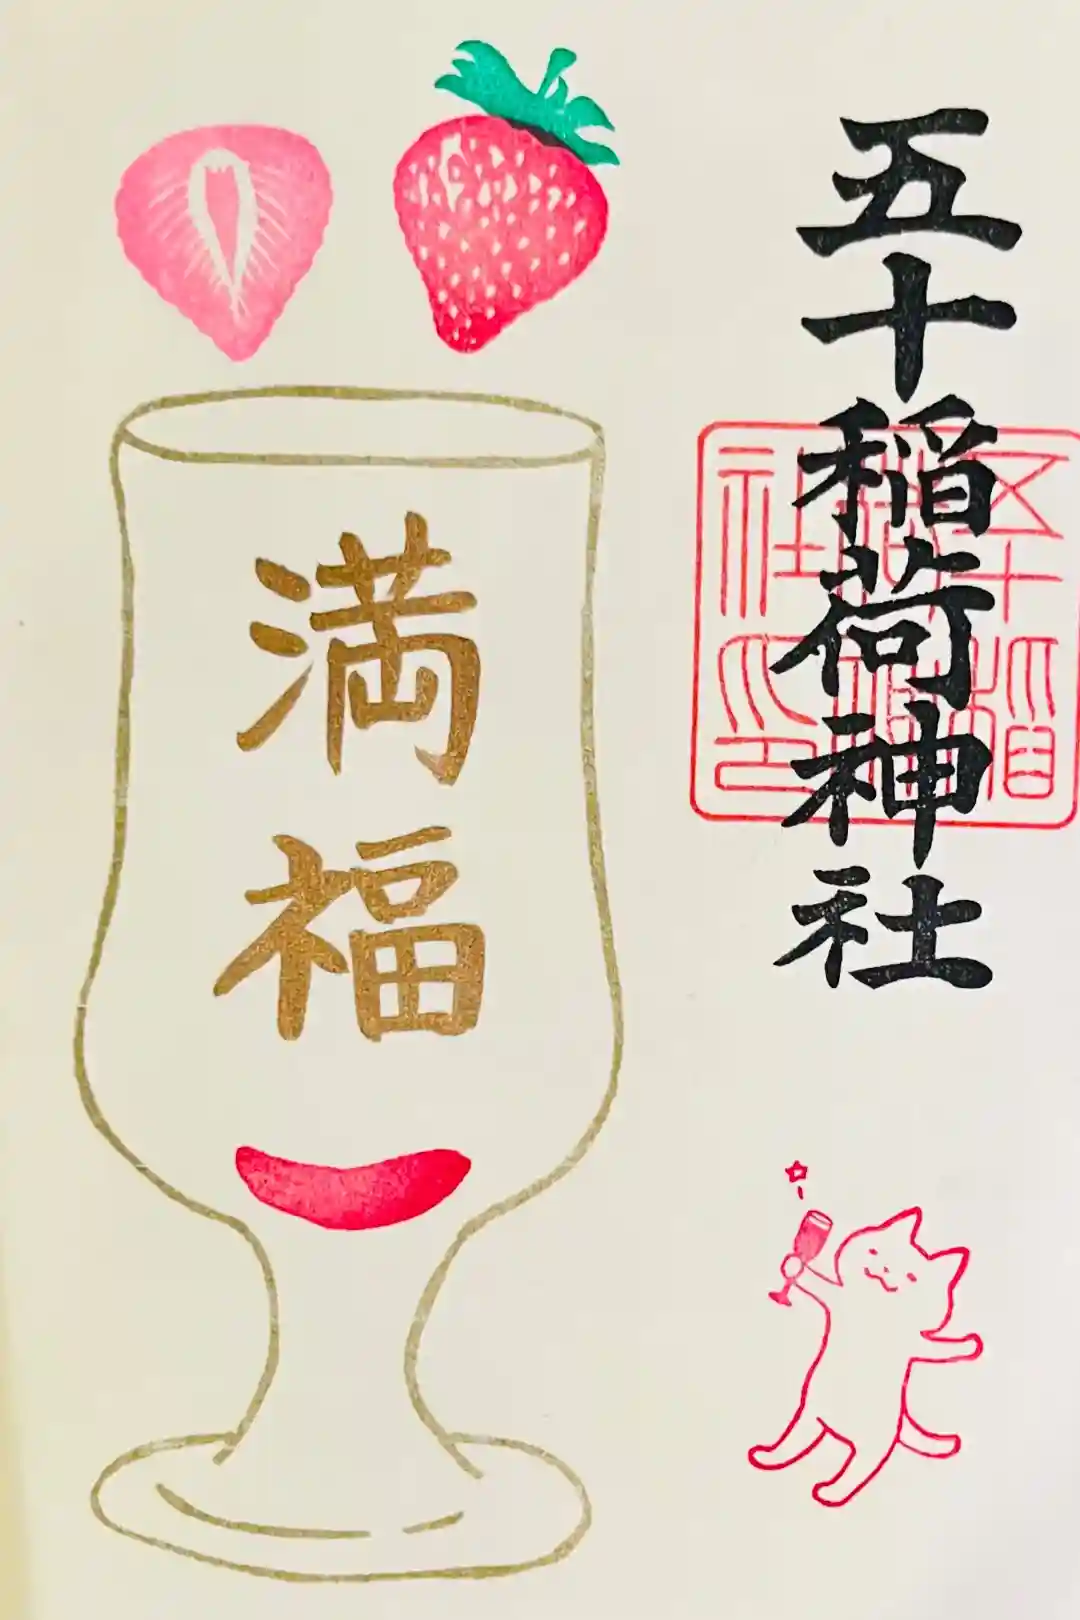 五十稲荷神社
満福